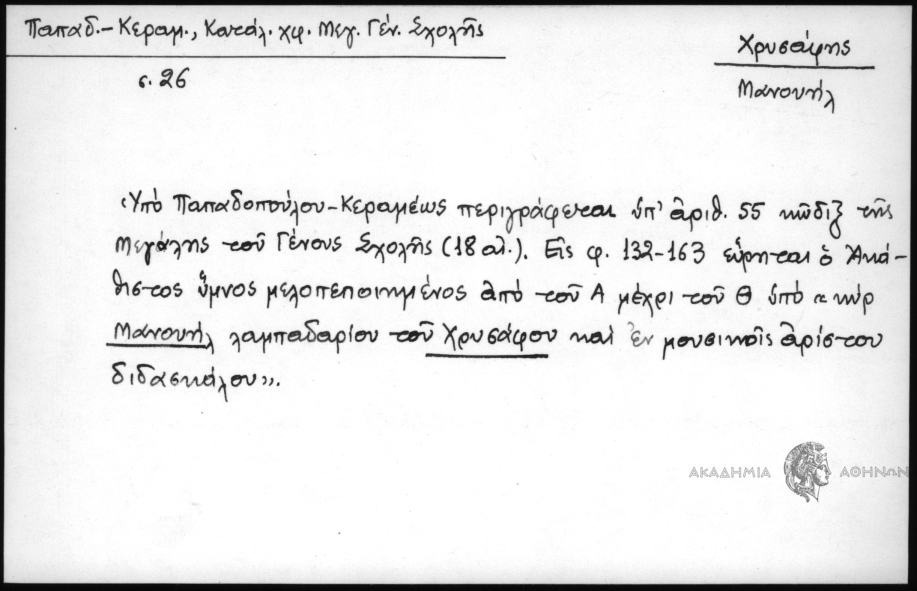 Παπαδ.-Κεραμ., Κατάλ. χφ. Μεγ. Γέν. Σχολῆς
σ. 26
Χρυσάφης
Μανουήλ
Ὑπὸ Παπαδοπούλου-Κεραμέως περιγράφεται ὑπ' ἀριθ. 55 κῶδιξ τῆς
Μεγάλης τοῦ Γένους Σχολῆς (18 αἰ.). Εἰς φ. 132-163 εὕρηται ὁ Ἀκά-
θιστος ὕμνος μελοπεποιημένος ἀπὸ τοῦ Α μέχρι τοῦ Θ ὑπὸ « κὺρ
Μανουήλ λαμπαδαρίου τοῦ Χρυσάφου καὶ ἐν μουσικοῖς ἀρίστου
διδασκάλου».
ΑΚΑΔΗΜΙΑ ΑΘΗΝΩΝ